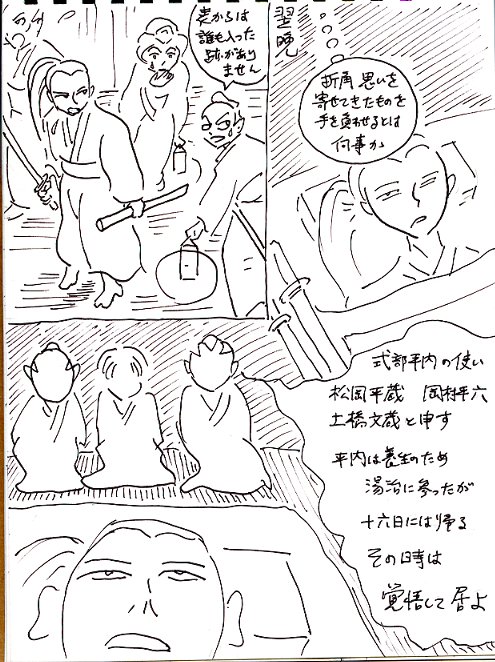 表からは
誰も入った
跡があり
ません
翌晩
折角 思いを
寄せてきたものを
手を負わせるとは
何事か
式部平内の使い
松岡平蔵 岡村平六
土橋文蔵と申す
平内は養生のため
湯治に参ったが
十六日には帰る
その時は
覚悟して居よ